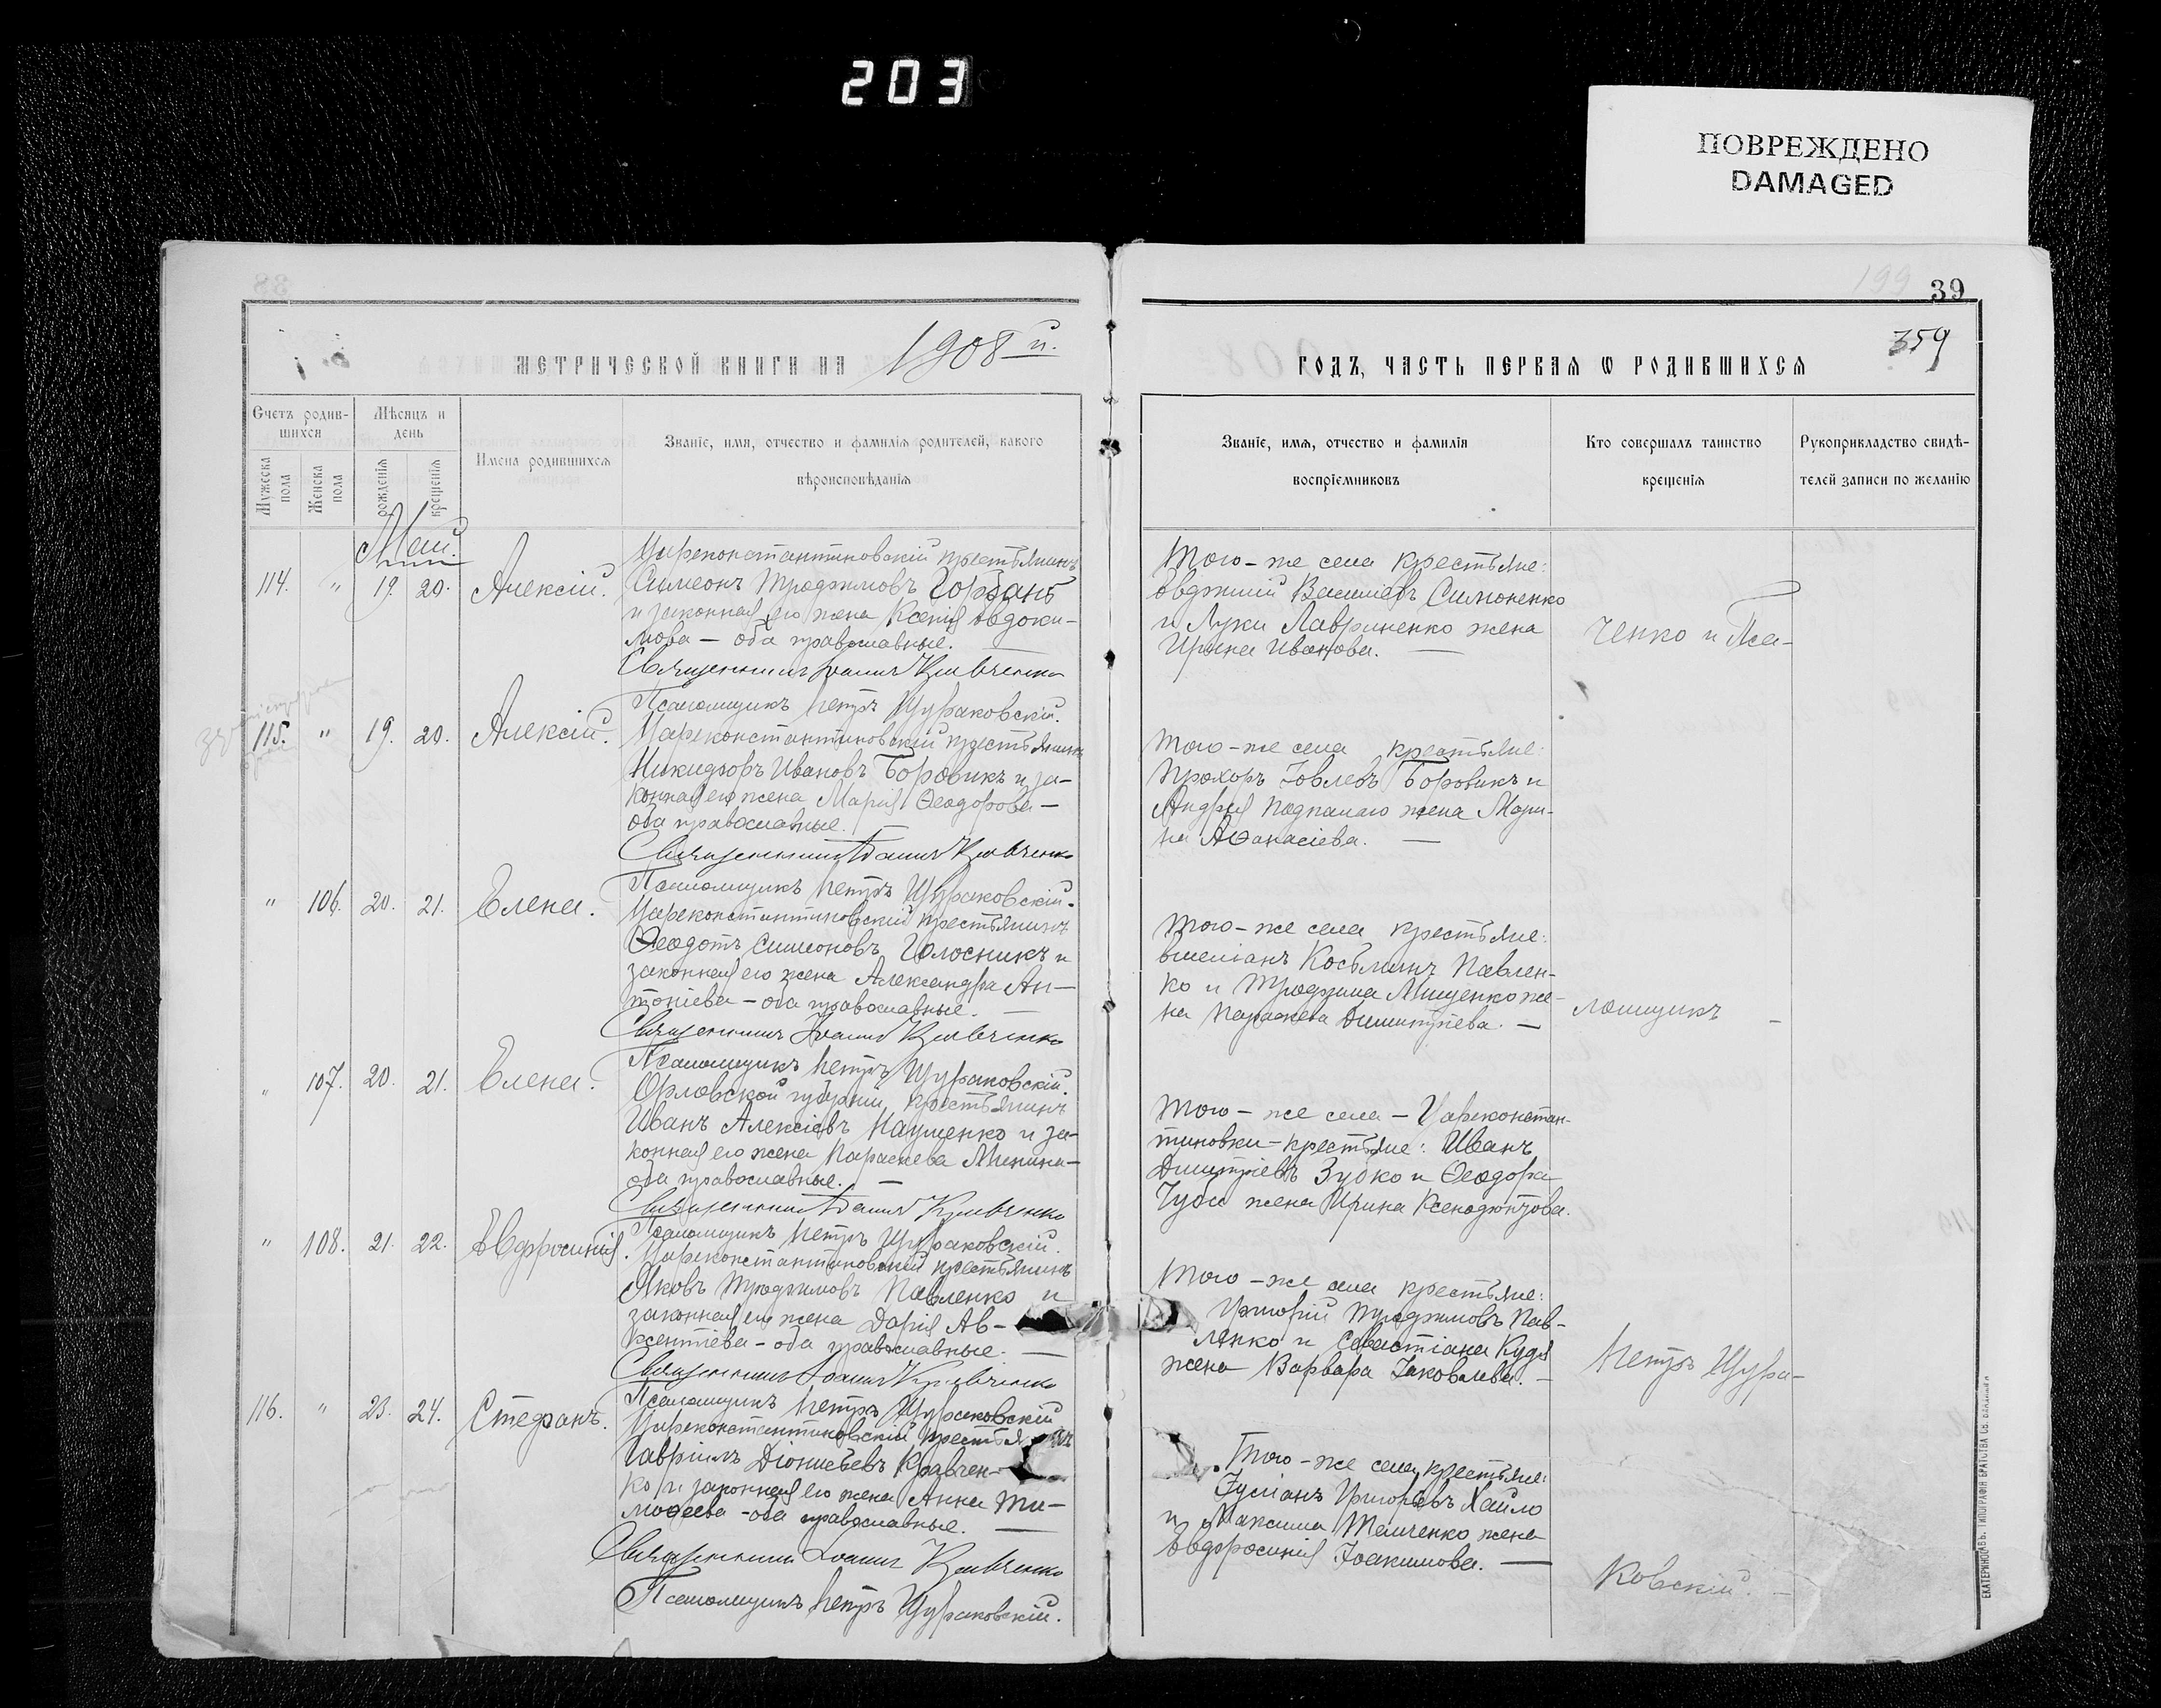 203
ПОВРЕЖДЕНО
DAMAGED
199
39
359
МЕТРИЧЕСКОЙ КНИГИ НА 1908 й.
Счетъ родив-
шихся
Мѣсяцъ и
день
Мужеска пола
Женска пола
рожденія
крещенія
Имена родившихся
Званіе, имя, отчество и фамилія родителей, какого
вѣроисповѣданія
Май.
114. " 19. 20. Алексій.
Цареконстантиновскій крестьянинъ
Симеонъ Трофимовъ Горбань
и законная его жена Ксенія Овдоки-
мова — оба православные. —
Священникъ Іоаннъ Кривченко
Псаломщикъ Петръ Щураковскій.
115. " 19. 20. Алексій.
Цареконстантиновскій крестьянинъ
Никифоръ Ивановъ Боровикъ и за-
конная его жена Марія Ѳеодорова —
оба православные.
Священникъ Іоаннъ Кривченко
Псаломщикъ Петръ Щураковскій.
" 106. 20. 21. Елена.
Цареконстантиновскій крестьянинъ
Ѳеодотъ Симеоновъ Голосникъ и
законная его жена Александра Ан-
тоніева — оба православные. —
Священникъ Іоаннъ Кривченко
Псаломщикъ Петръ Щураковскій.
" 107. 20. 21. Елена.
Орловской губерніи, крестьянинъ
Иванъ Алексіевъ Науменко и за-
конная его жена Параскева Минина —
оба православные. —
Священникъ Іоаннъ Кривченко
Псаломщикъ Петръ Щураковскій.
" 108. 21. 22. Евфросинія.
Цареконстантиновскій крестьянинъ
Яковъ Трофимовъ Павленко и
законная его жена Дарія Ав-
ксентіева — оба православные. —
Священникъ Іоаннъ Кривченко
Псаломщикъ Петръ Щураковскій
116. " 23. 24. Стефанъ.
Цареконстантиновскій крестьянинъ
Гавріилъ Діонисіевъ Кравчен-
ко и законная его жена Анна Ти-
моѳеева — оба православные. —
Священникъ Іоаннъ Кривченко
Псаломщикъ Петръ Щураковскій.
ГОДЪ, ЧАСТЬ ПЕРВАЯ Ѡ РОДИВШИХСЯ
Званіе, имя, отчество и фамилія
воспріемниковъ
Кто совершалъ таинство
крещенія
Рукоприкладство свидѣ-
телей записи по желанію
Того-же села крестьяне:
Овдокій Василіевъ Симоненко
и Луки Лавриненко жена
Ирина Иванова. —
ченко и Пса-
Того-же села крестьяне:
Прохоръ Іовлевъ Боровикъ и
Андрея Подпалаго жена Мари-
на Аѳанасіева. —
Того-же села крестьяне:
Емеліанъ Косьминъ Павлен-
ко и Трофима Мищенко же-
на Параскева Димитріева. —
ломщикъ —
Того-же села — Цареконстан-
тиновки — крестьяне: Иванъ
Димитріевъ Зубко и Ѳеодора
Губы жена Ирина Ксенофонтова.
Того-же села крестьяне:
Григорій Трофимовъ Пав-
ленко и Севастіана Кудя
жена Варвара Іаковлева. —
Петръ Щура-
Того-же села крестьяне:
Іуліанъ Григорьевъ Хайло
и Максима Темченко жена
Евфросинія Іоакимова. —
ковскій. —
ЕКАТЕРИНОСЛАВЪ. ТИПОГРАФІЯ БРАТСТВА СВ. ВЛАДИМІРА